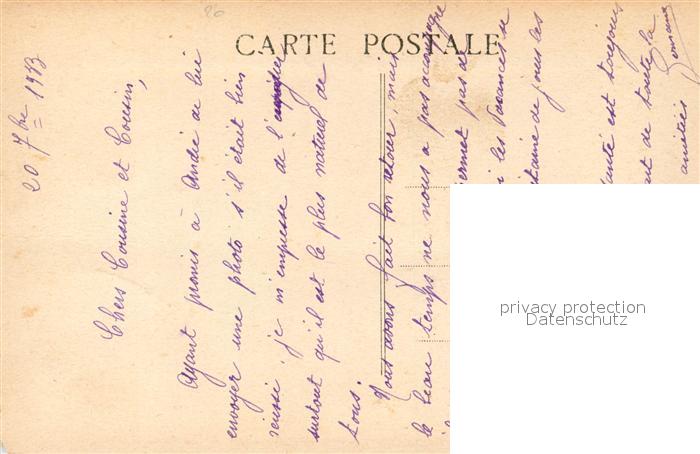 CARTE POSTALE
20 7bre 1913
Chers Cousine et Cousin,
Ayant promis à André de lui
envoyer une photo s'il était bien
réussi je m'empresse de l'
surtout qu'il est le plus naturel de
tous.
Nous avons fait bon retour, mais
le beau temps ne nous a pas accompagné
pas de
les vacances se
de jours les
santé est toujours
de toute la
amitiés Germaine
privacy protection
Datenschutz